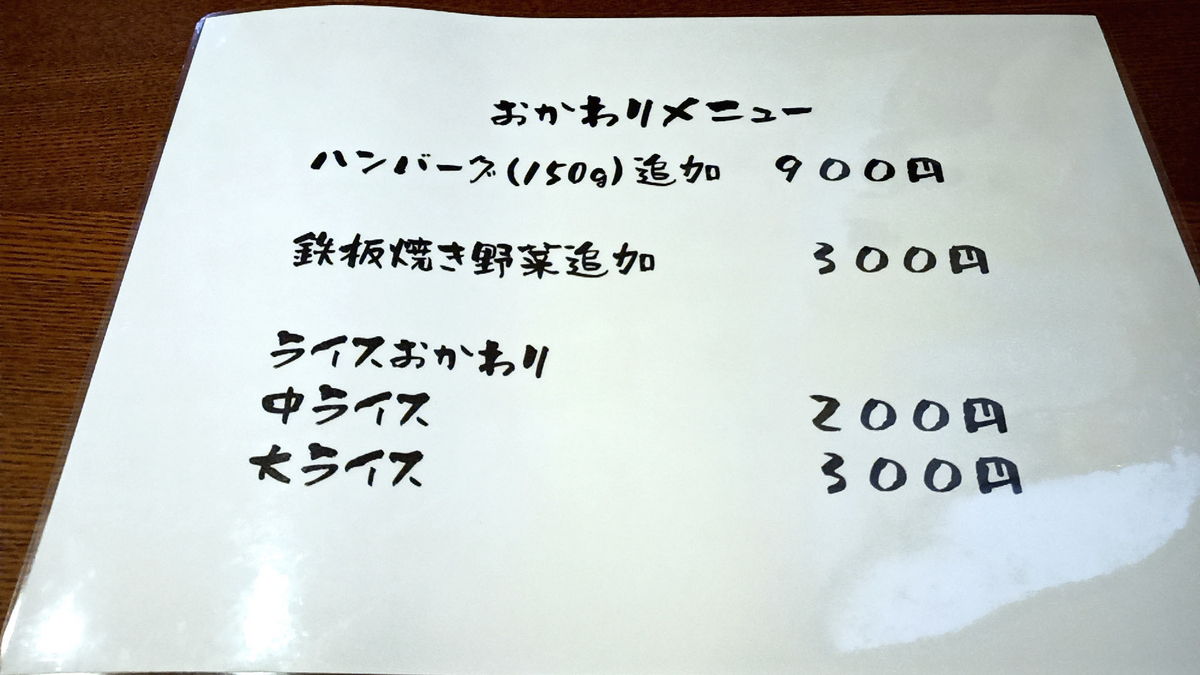 おかわりメニュー
ハンバーグ(150g)追加 900円
鉄板焼き野菜追加 300円
ライスおかわり
中ライス 200円
大ライス 300円